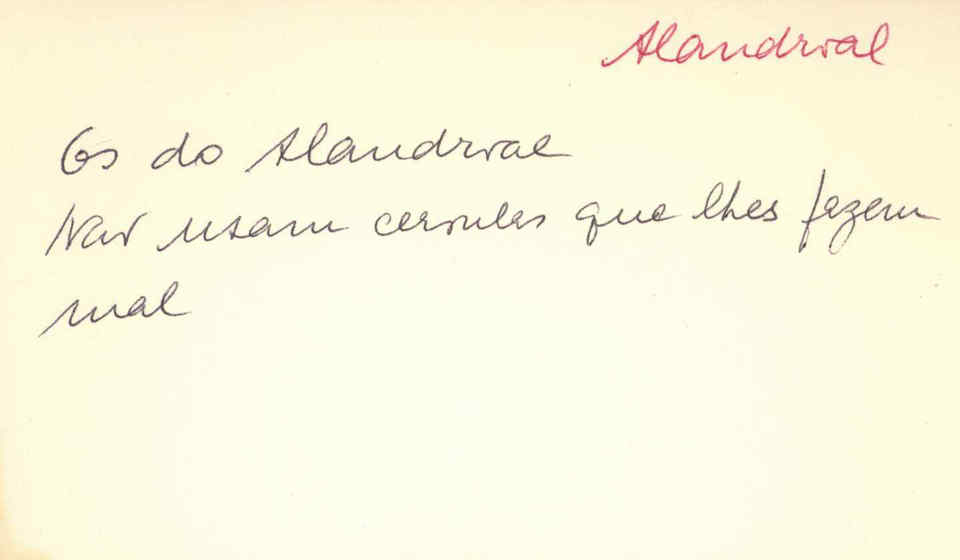 Alandroal
Os do Alandroal
Não usam ceroulas que lhes fazem
mal